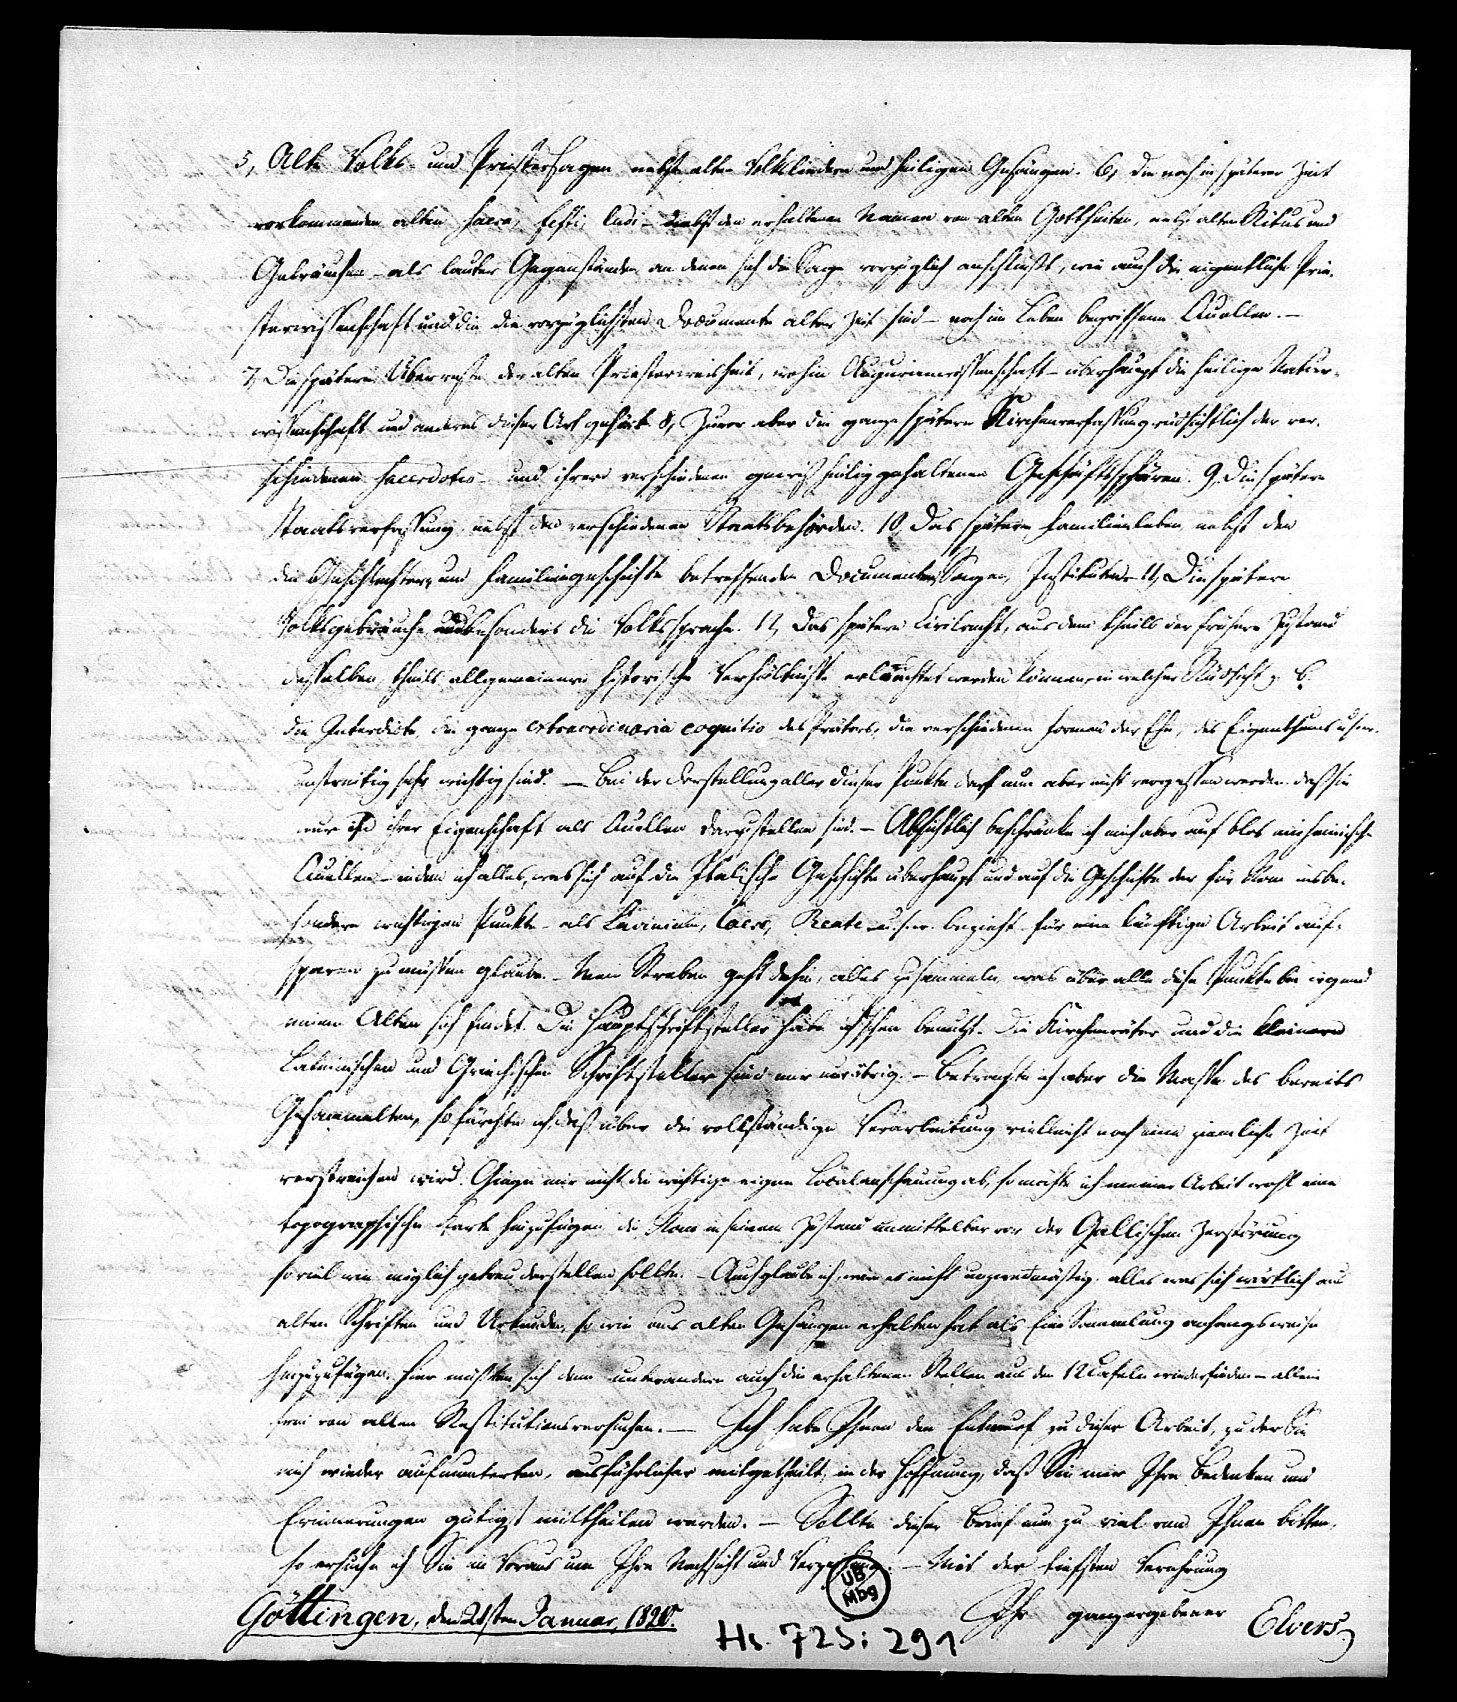 5, Alte Volks- und Priestersagen nebst alten Volksliedern und heiligen Gesängen. 6, die noch in späterer Zeit
vorkommenden alten sacra, festi, ludi – nebst den erhaltenen Namen von alten Gottheiten, nebst alten Ritus und
Gebräuchen – als lauter Gegenständen an denen sich die Sage vorzüglich anschließt, wie auch die eigentliche Prie-
sterwissenschaft und die die vorzüglichsten Documente alter Zeit sind – noch im Leben begriffene Quellen. –
7, Die spätern Überreste der alten Priesterweisheit, wohin Augurienwissenschaft – überhaupt die heilige Natur-
wissenschaft und anderes dieser Art gehört. 8, Zuvor aber die ganze spätere Kirchenverfassung rücksichtlich der ver-
schiedenen sacerdotes und ihrer verschiedenen heilig gehaltenen Geschäftssphären. 9, Die spätere
Staatsverfassung nebst den verschiedenen Staatsbehörden. 10, Das spätere Familienleben nebst den
die Geschlechter und Familiengeschichte betreffenden Documenten, Sagen, Instituten. 11, Die spätern
Volksgebräuche und besonders die Volkssprache. 12, Das spätere Civilrecht, aus dem theils der frühere Zustand
desselben, theils allgemeinere historische Verhältnisse erleuchtet werden können, in welcher Rücksicht z. B.
die Interdicte, die ganze extraordinaria cognitio des Prätors, die verschiedenen Formen der Ehe, des Eigenthums u.s.w.
unstreitig sehr wichtig sind. – Bei der Darstellung aller dieser Punkte darf nun aber nicht vergessen werden, daß sie
nur in ihrer Eigenschaft als Quellen darzustellen sind. – Absichtlich beschränke ich mich aber auf blos einheimische
Quellen – indem ich alles, was sich auf die Italische Geschichte überhaupt und auf die Geschichte der für Rom insbe-
sondere wichtigen Punkte – als Lavinium, Caere, Reate u.s.w. bezieht für eine künftige Arbeit auf-
sparen zu müssen glaube. – Mein Streben geht dahin, alles zu sammeln, was über alle diese Punkte bei irgend
einem Alten sich findet. Die Hauptschriftsteller habe ich schon benutzt. Die Kirchenväter und die kleinern
Lateinischen und Griechischen Schriftsteller sind mir nur übrig. – Betrachte ich aber die Masse des bereits
Gesammelten, so fürchte ich, daß über die vollständige Verarbeitung vielleicht noch eine ziemliche Zeit
verstreichen wird. Ginge mir nicht die wichtige eigene Localanschauung ab, so möchte ich meiner Arbeit wohl eine
topographische Karte hinzufügen die Rom in seinem Zustand unmittelbar vor der Gallischen Zerstörung
soviel wie möglich getreu darstellen sollte. – Auch glaube ich, wäre es nicht unzweckmäßig, alles was sich wörtlich aus
alten Schriften und Urkunden, so wie aus alten Gesängen erhalten hat als Eine Sammlung anhangsweise
hinzuzufügen. Hier müßten sich denn unter andern auch die erhaltenen Stellen aus den 12 Tafeln wiederfinden – allein
frei von allen Restitutionsversuchen. – Ich habe Ihnen den Entwurf zu dieser Arbeit, zu der Sie
mich wieder aufmunterten, ausführlicher mitgetheilt, in der Hoffnung, daß Sie mir Ihre Bedenken und
Erinnerungen gütigst mittheilen werden. – Sollte dieser Brief nun zu viel von Ihnen bitten,
so ersuche ich Sie im Voraus um Ihre Nachsicht und Verzeihung. – Mit der tiefsten Verehrung
Göttingen, den 21sten Januar, 1820. Ihr ganz ergebener Elvers
UB Mbg
Hs. 725: 291